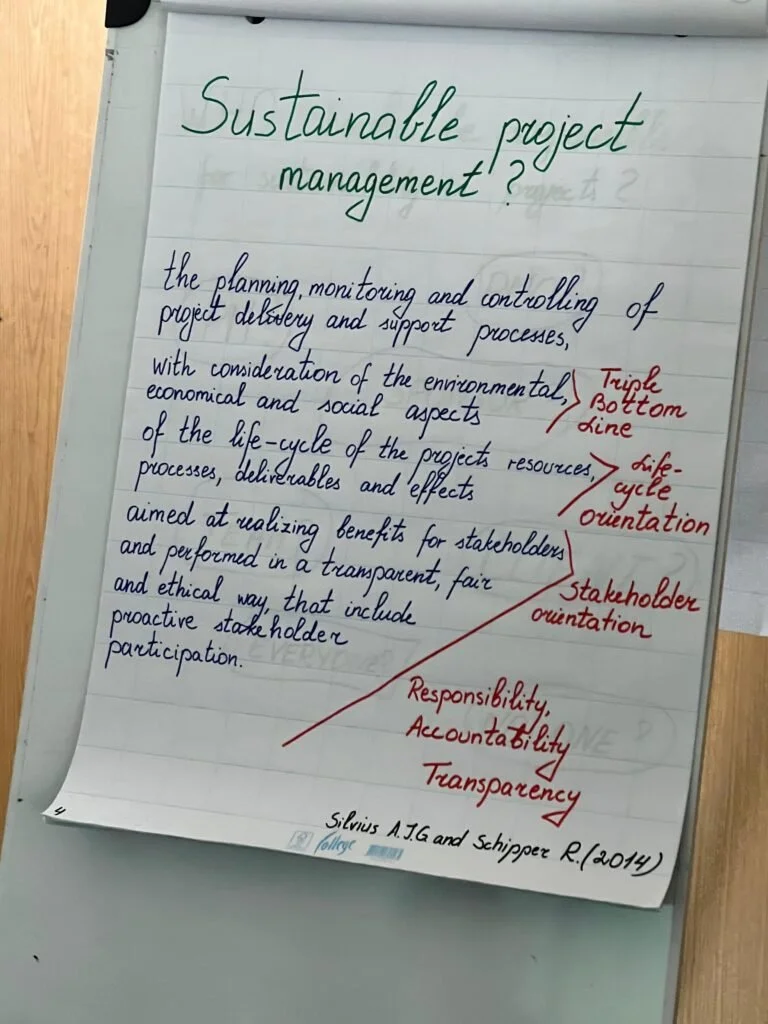 Sustainable project
management?
the planning, monitoring and controlling of
project delivery and support processes,
with consideration of the environmental,
economical and social aspects
Triple
Bottom
Line
of the life-cycle of the projects resources,
processes, deliverables and effects
Life-
cycle
orientation
aimed at realizing benefits for stakeholders
and performed in a transparent, fair
and ethical way, that include
proactive stakeholder
participation.
Stakeholder
orientation
Responsibility,
Accountability
Transparency
4
Silvius A.J.G and Schipper R. (2014)
College
EVERYONE?